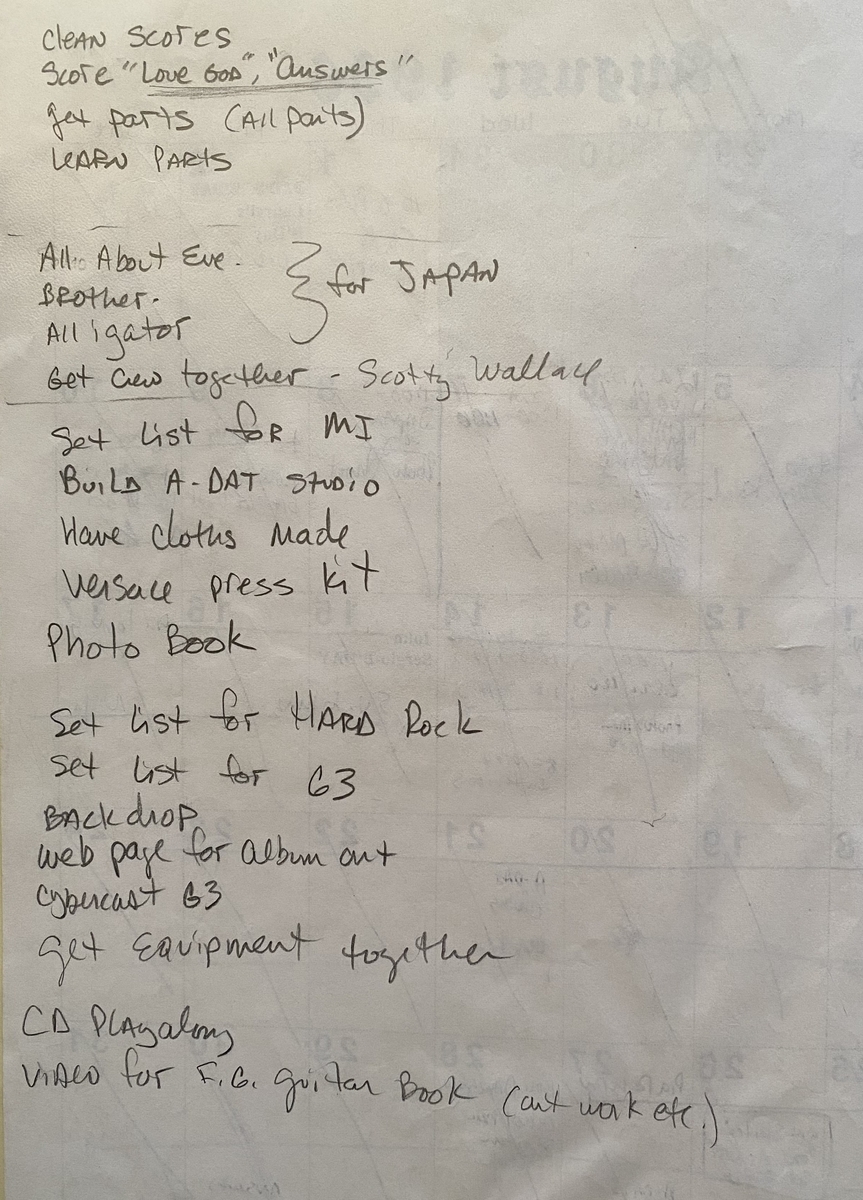 Clean Scores
Score "Love God", "Answers"
get parts (All parts)
Learn Parts
All About Eve.
Brother.
Alligator
} for JAPAN
Get crew together - Scotty Wallace
Set List for MI
Build A-DAT Studio
Have cloths made
Versace press kit
Photo Book
Set list for HARD Rock
Set list for G3
Backdrop
web page for album art
Cybercast G3
get Equipment together
CD Playalong
Video for F.G. guitar Book (art work etc.)